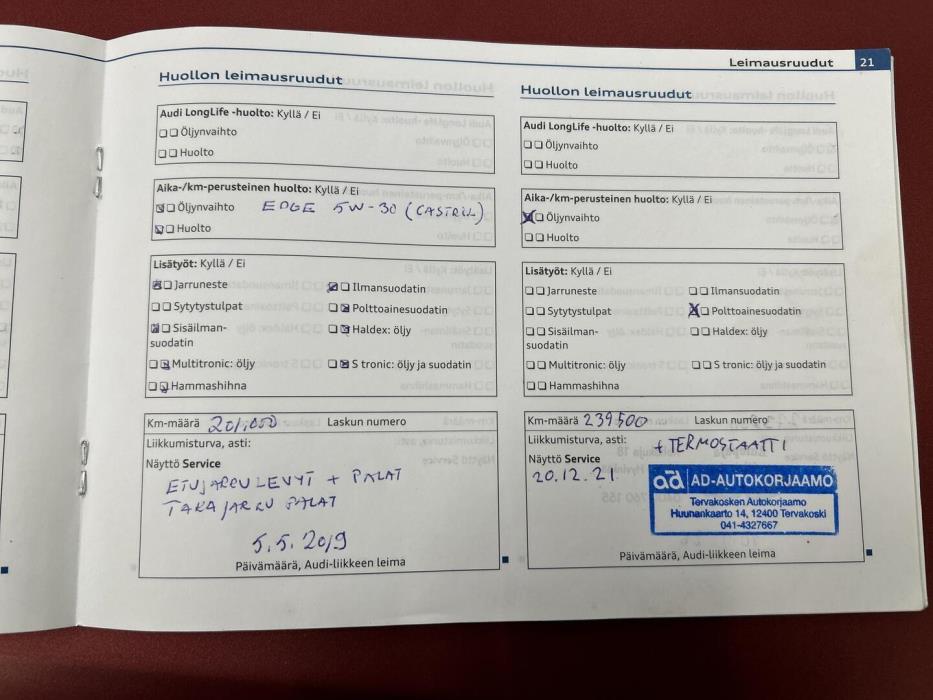 Leimausruudut 21
Huollon leimausruudut
Audi LongLife -huolto: Kyllä / Ei
☐☐ Öljynvaihto
☐☐ Huolto
Aika-/km-perusteinen huolto: Kyllä / Ei
☒☐ Öljynvaihto EDGE 5W-30 (CASTROL)
☒☐ Huolto
Lisätyöt: Kyllä / Ei
☒☐ Jarruneste ☒☐ Ilmansuodatin
☐☐ Sytytystulpat ☐☒ Polttoainesuodatin
☒☐ Sisäilman- ☐☒ Haldex: öljy
suodatin
☐☒ Multitronic: öljy ☐☒ S tronic: öljy ja suodatin
☐☒ Hammashihna
Km-määrä 201.000 Laskun numero
Liikkumisturva, asti:
Näyttö Service
ETUJARRU LEVYT + PALAT
TAKA JARRU PALAT
5.5.2019
Päivämäärä, Audi-liikkeen leima
Huollon leimausruudut
Audi LongLife -huolto: Kyllä / Ei
☐☐ Öljynvaihto
☐☐ Huolto
Aika-/km-perusteinen huolto: Kyllä / Ei
☒☐ Öljynvaihto
☐☐ Huolto
Lisätyöt: Kyllä / Ei
☐☐ Jarruneste ☐☐ Ilmansuodatin
☐☐ Sytytystulpat ☒☐ Polttoainesuodatin
☐☐ Sisäilman- ☐☐ Haldex: öljy
suodatin
☐☐ Multitronic: öljy ☐☐ S tronic: öljy ja suodatin
☐☐ Hammashihna
Km-määrä 239500 Laskun numero
Liikkumisturva, asti: + TERMOSTAATTI
Näyttö Service
20.12.21
ad AD-AUTOKORJAAMO
Tervakosken Autokorjaamo
Huunankaarto 14, 12400 Tervakoski
041-4327667
Päivämäärä, Audi-liikkeen leima